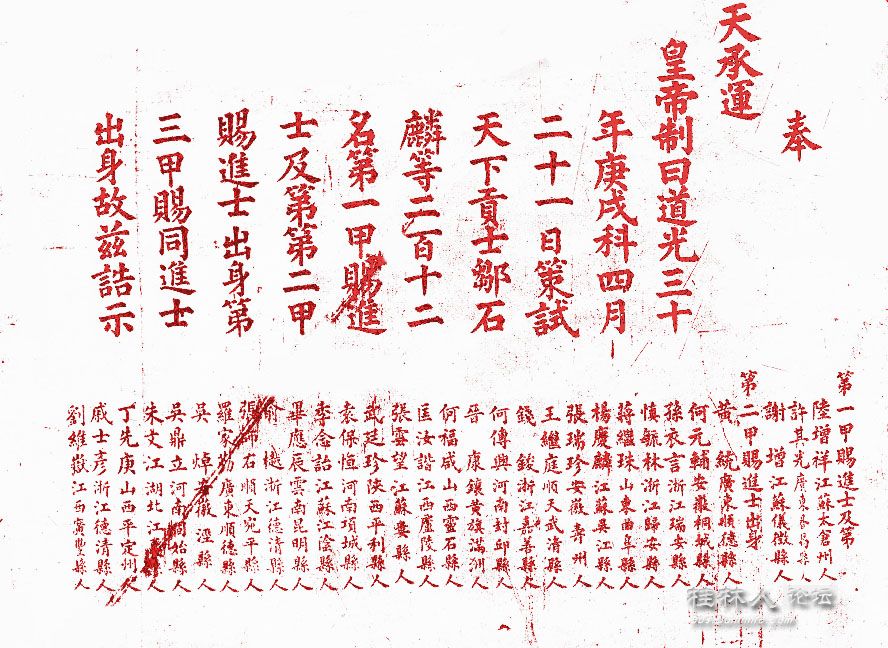 奉
天承運
皇帝制曰道光三十
年庚戌科四月
二十一日策試
天下貢士鄒石
麟等二百十二
名第一甲賜進
士及第第二甲
賜進士出身第
三甲賜同進士
出身故茲誥示
第一甲賜進士及第
陸增祥江蘇太倉州人
許其光廣東番禺縣人
謝增江蘇儀徵縣人
第二甲賜進士出身
黃統廣東順德縣人
何元輔安徽桐城縣人
孫衣言浙江瑞安縣人
慎毓林浙江歸安縣人
蔣繼珠山東曲阜縣人
楊慶麟江蘇吳江縣人
張瑞珍安徽壽州人
王繼庭順天武清縣人
錢浙江嘉善縣人
何傳興河南封邱縣人
晉康鑲黃旗滿洲人
何福咸山西靈石縣人
匡汝諧江西廬陵縣人
張雲望江蘇婁縣人
武廷珍陝西平利縣人
袁保恒河南項城縣人
李念詒江蘇江陰縣人
畢應辰雲南昆明縣人
俞樾浙江德清縣人
張石順天宛平縣人
羅家勤廣東順德縣人
吳焯安徽涇縣人
吳鼎立河南固始縣人
朱文江湖北江縣人
丁先庚山西平定州人
戚士彥浙江德清縣人
劉維嶽江西廣豐縣人
桂林人 论坛